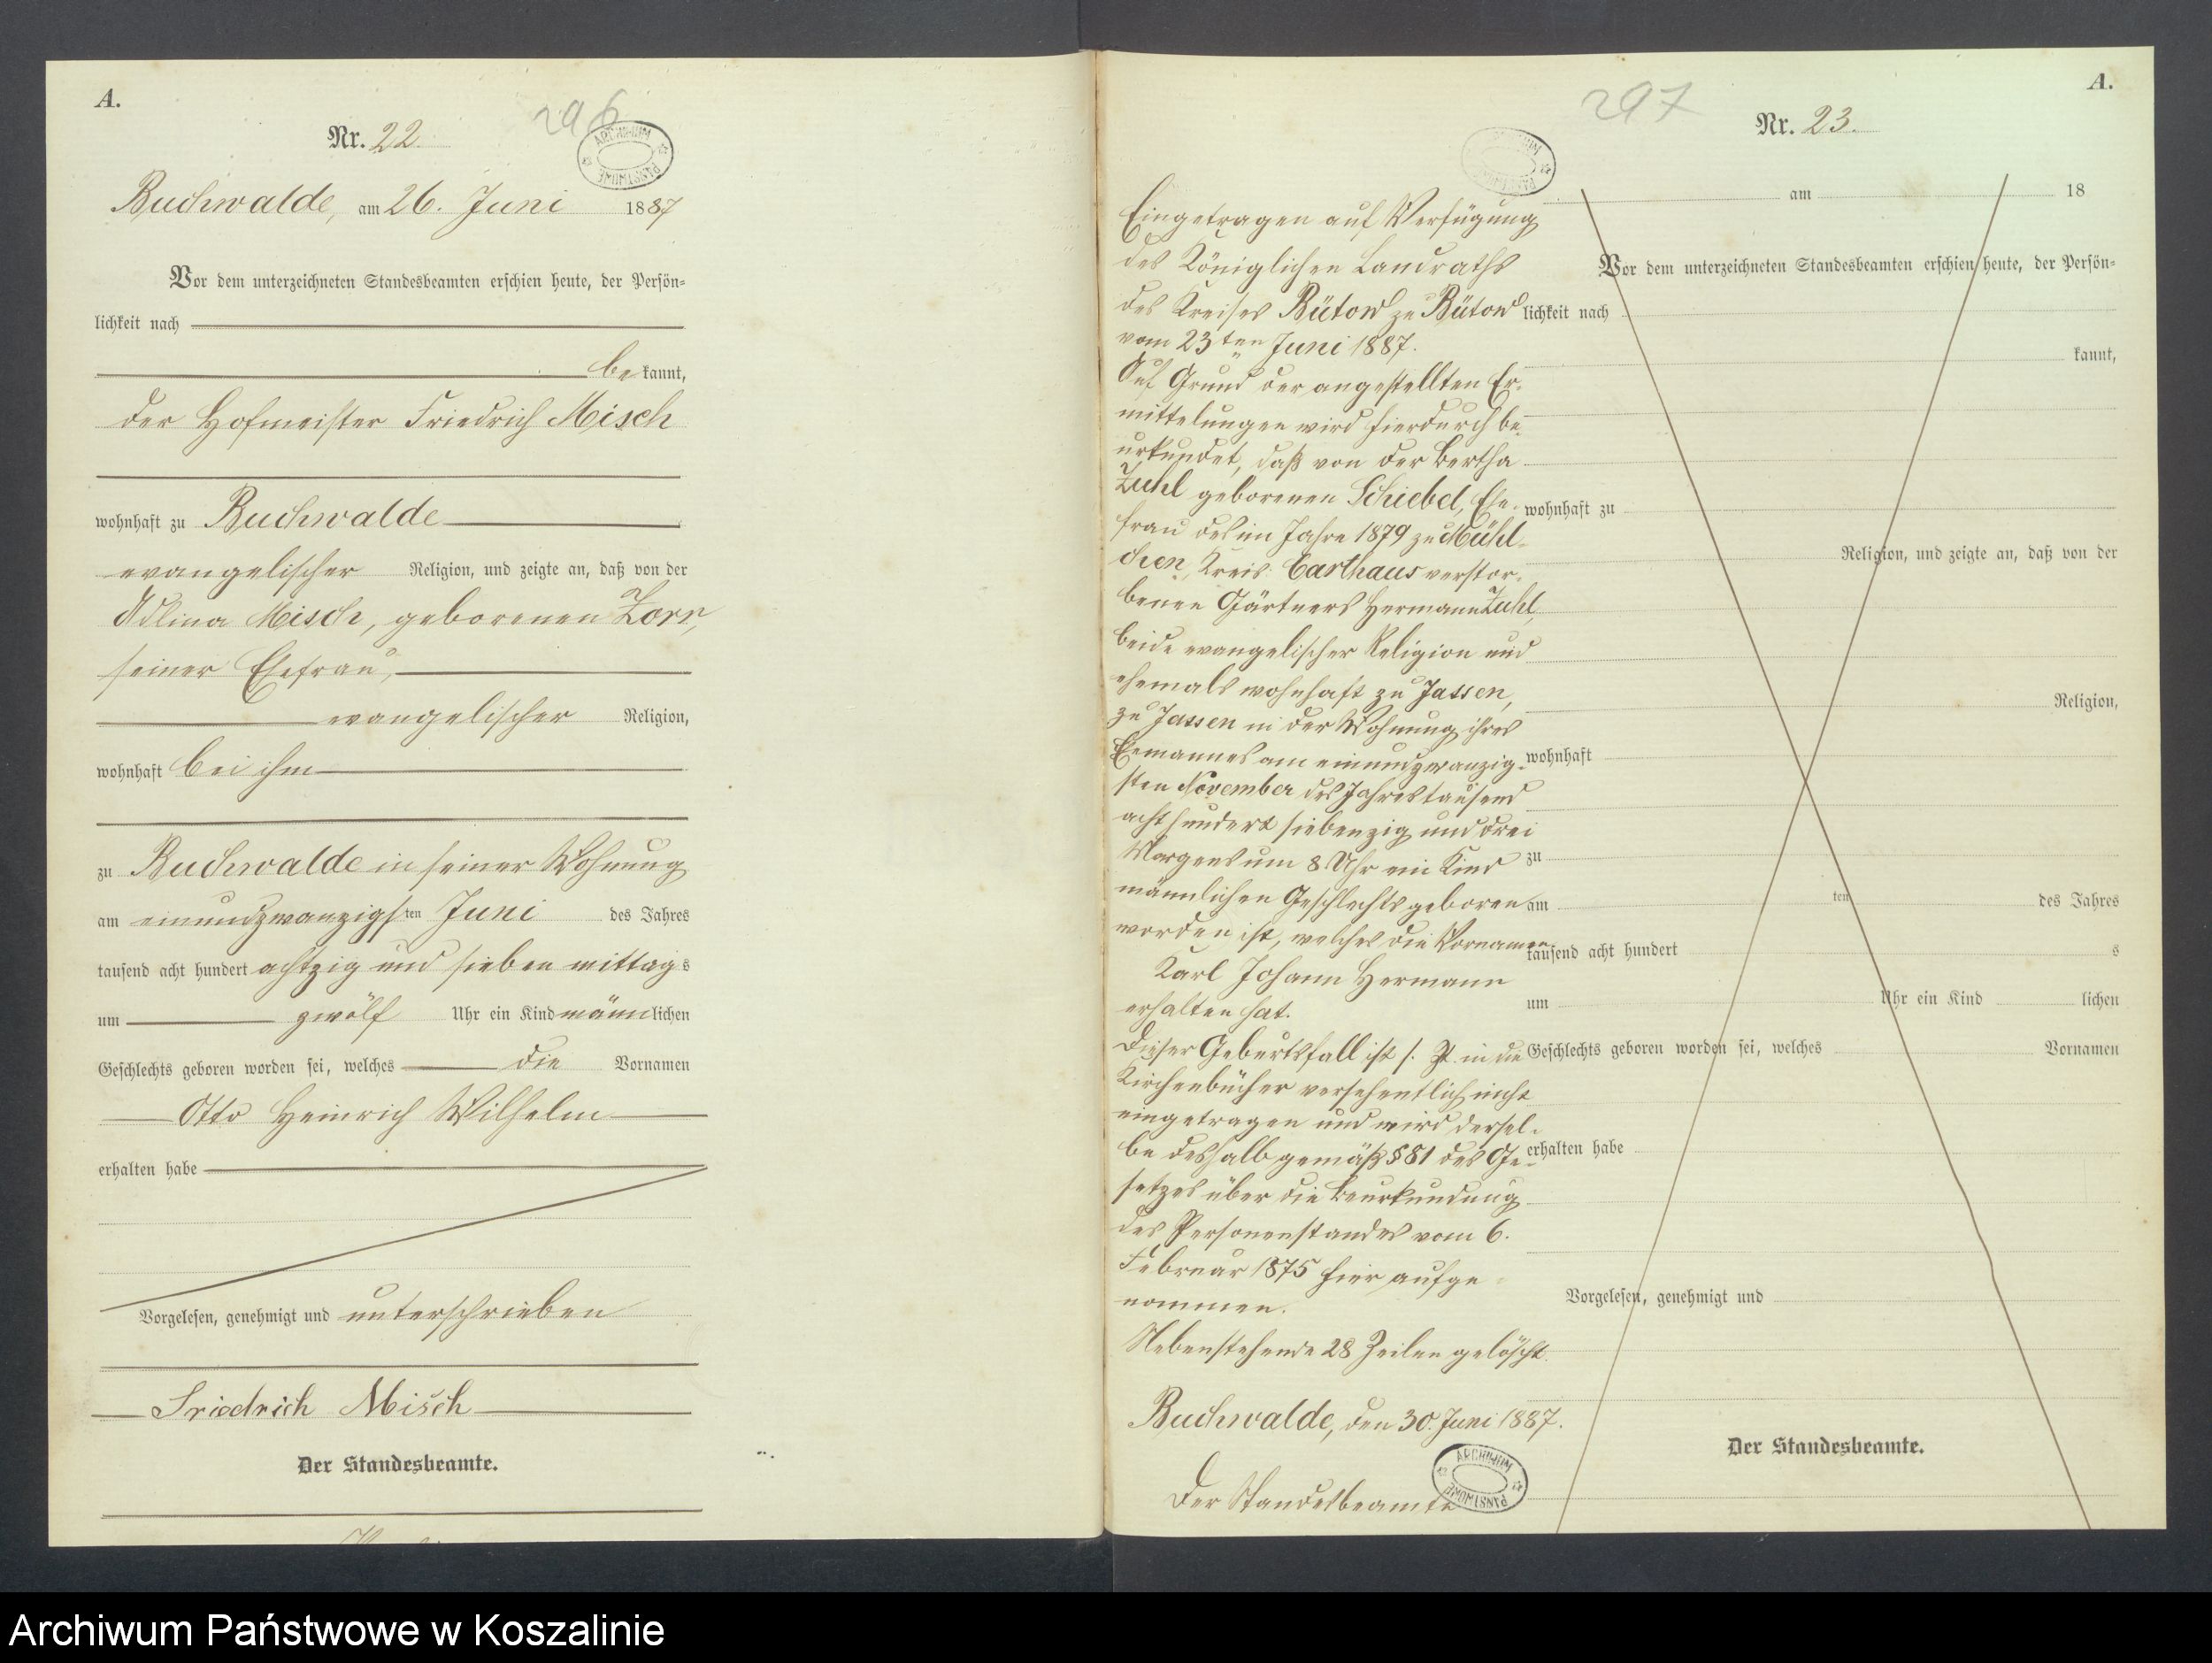 A.
296
Nr. 22.
ARCHIWUM PAŃSTWOWE
Buchwalde, am 26. Juni 1887
Vor dem unterzeichneten Standesbeamten erschien heute, der Persön-
lichkeit nach
be kannt,
der Hofmeister Friedrich Misch
wohnhaft zu Buchwalde
evangelischer Religion, und zeigte an, daß von der
Misch, geborenen Zorr,
seiner Ehefrau,
evangelischer Religion,
wohnhaft bei ihm
zu Buchwalde in seiner Wohnung
am einundzwanzigsten Juni des Jahres
tausend acht hundert achtzig und sieben mittags
um zwölf Uhr ein Kind männlichen
Geschlechts geboren worden sei, welches die Vornamen
Otto Heinrich Wilhelm
erhalten habe
Vorgelesen, genehmigt und unterschrieben
Friedrich Misch
Der Standesbeamte.
A.
297
Nr. 23.
ARCHIWUM PAŃSTWOWE
Eingetragen auf Verfügung
des Königlichen Landraths
des Kreises Bütow zu Bütow
vom 23ten Juni 1887.
Auf Grund der angestellten Er-
mittelungen wird hierdurch be-
urkundet, daß von der Bertha
Zuhl geborenen Schiebel, Ehe-
frau des im Jahre 1879 zu Mühl-
chen, Kreis Carthaus verstor-
benen Gärtners Hermann Zuhl,
beide evangelischer Religion und
ehemals wohnhaft zu Jassen,
zu Jassen in der Wohnung ihres
Ehemannes am einundzwanzig-
sten November des Jahres tausend
acht hundert siebenzig und drei
Morgens um 8 Uhr ein Kind
männlichen Geschlechts geboren
worden ist, welches die Vornamen
Karl Johann Hermann
erhalten hat.
Dieser Geburtsfall ist s. Zt. in die
Kirchenbücher versehentlich nicht
eingetragen und wird dersel-
be deshalb gemäß § 81 des Ge-
setzes über die Beurkundung
des Personenstandes vom 6.
Februar 1875 hier aufge-
nommen.
Nebenstehende 28 Zeilen gelöscht.
Buchwalde, den 30. Juni 1887.
Der Standesbeamte
ARCHIWUM PAŃSTWOWE
am 18
Vor dem unterzeichneten Standesbeamten erschien heute, der Persön-
lichkeit nach
kannt,
wohnhaft zu
Religion, und zeigte an, daß von der
Religion,
wohnhaft
zu
am ten des Jahres
tausend acht hundert s
um Uhr ein Kind lichen
Geschlechts geboren worden sei, welches Vornamen
erhalten habe
Vorgelesen, genehmigt und
Der Standesbeamte.
Archiwum Państwowe w Koszalinie